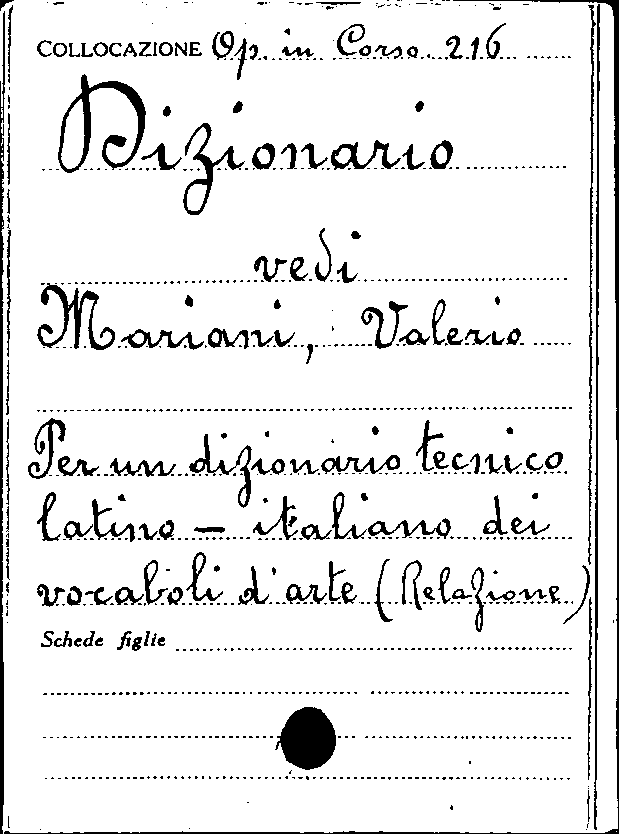 COLLOCAZIONE Op. in Corso. 216
Dizionario
vedi
Mariani, Valerio
Per un dizionario tecnico
latino - italiano dei
vocaboli d'arte (Relazione)
Schede figlie